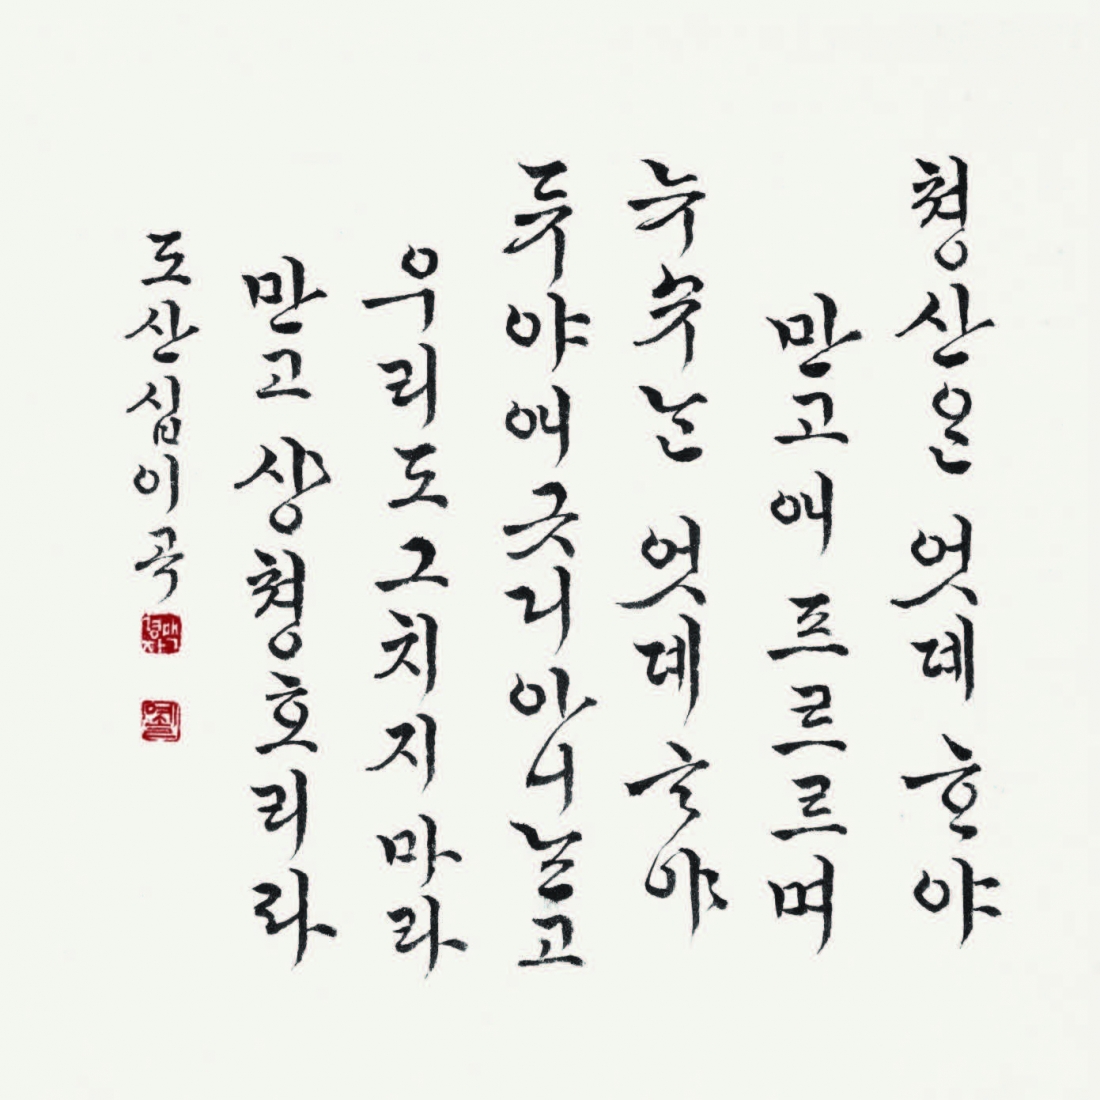 쳥산은 엇뎨 ᄒᆞ야
만고애 프르르며
뉴슈는 엇뎨 ᄒᆞ야
듀야애 긋디 아니ᄂᆞᆫ고
우리도 그치지 마라
만고 샹쳥호리라
도산십이곡